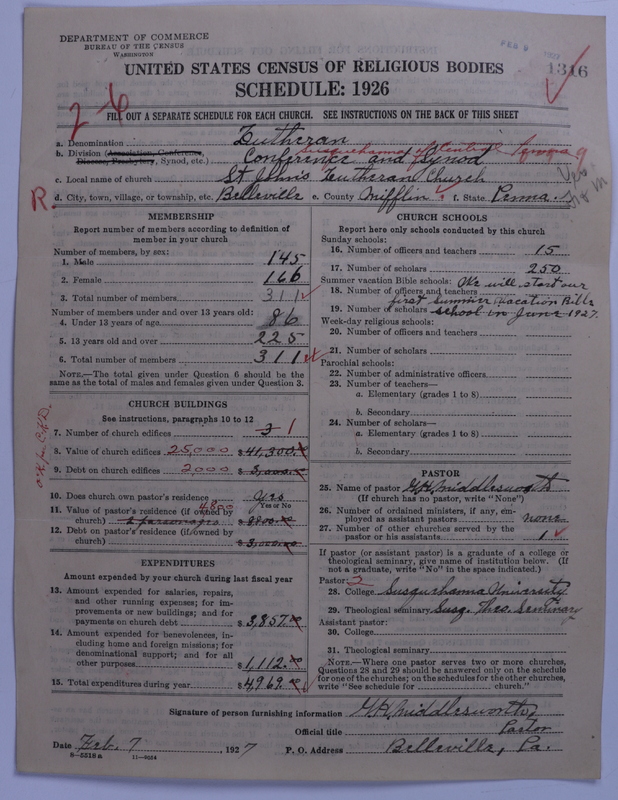 DEPARTMENT OF COMMERCE
BUREAU OF THE CENSUS
WASHINGTON
FEB 9 1927
1316
UNITED STATES CENSUS OF RELIGIOUS BODIES
SCHEDULE: 1926
2-6
FILL OUT A SEPARATE SCHEDULE FOR EACH CHURCH. SEE INSTRUCTIONS ON THE BACK OF THIS SHEET
a. Denomination Lutheran
b. Division (Association, Conference, Diocese, Presbytery, Synod, etc.) Conference and Synod
Susquehanna of Central Penna
c. Local name of church St John's Lutheran Church
R
d. City, town, village, or township, etc. Belleville e. County Mifflin f. State Penna.
MEMBERSHIP
Report number of members according to definition of member in your church
Number of members, by sex:
1. Male 145
2. Female 166
3. Total number of members 311
Number of members under and over 13 years old:
4. Under 13 years of age 86
5. 13 years old and over 225
6. Total number of members 311
NOTE.—The total given under Question 6 should be the same as the total of males and females given under Question 3.
CHURCH BUILDINGS
See instructions, paragraphs 10 to 12
7. Number of church edifices 3 1
8. Value of church edifices 25,000 $41,300.00
9. Debt on church edifices 2,000 $3,000.00
10. Does church own pastor's residence Yes
Yes or No
11. Value of pastor's residence (if owned by church) 4800 a parsonage $9800.00
12. Debt on pastor's residence (if owned by church) $3,000.00
EXPENDITURES
Amount expended by your church during last fiscal year
13. Amount expended for salaries, repairs, and other running expenses; for improvements or new buildings; and for payments on church debt $3,857.00
14. Amount expended for benevolences, including home and foreign missions; for denominational support; and for all other purposes $1,112.00
15. Total expenditures during year $4,969.00
CHURCH SCHOOLS
Report here only schools conducted by this church
Sunday schools:
16. Number of officers and teachers 15
17. Number of scholars 250
Summer vacation Bible schools: We will start our
18. Number of officers and teachers first Summer Vacation Bible
19. Number of scholars school in June 1927.
Week-day religious schools:
20. Number of officers and teachers
21. Number of scholars
Parochial schools:
22. Number of administrative officers
23. Number of teachers—
a. Elementary (grades 1 to 8)
b. Secondary
24. Number of scholars—
a. Elementary (grades 1 to 8)
b. Secondary
PASTOR
25. Name of pastor G.H. Middlesworth
(If church has no pastor, write "None")
26. Number of ordained ministers, if any, employed as assistant pastors none
27. Number of other churches served by the pastor or his assistants 1
If pastor (or assistant pastor) is a graduate of a college or theological seminary, give name of institution below. (If not a graduate, write "No" in the space indicated.)
Pastor: 2
28. College Susquehanna University
29. Theological seminary Susq. Theo. Seminary
Assistant pastor:
30. College
31. Theological seminary
NOTE.—Where one pastor serves two or more churches, Questions 28 and 29 should be answered only on the schedule for one of the churches; on the schedules for the other churches, write "See schedule for church."
Signature of person furnishing information G.H. Middlesworth,
Official title Pastor
Date Feb. 7, 1927 P. O. Address Belleville, Pa.
8-5518a 11-9654